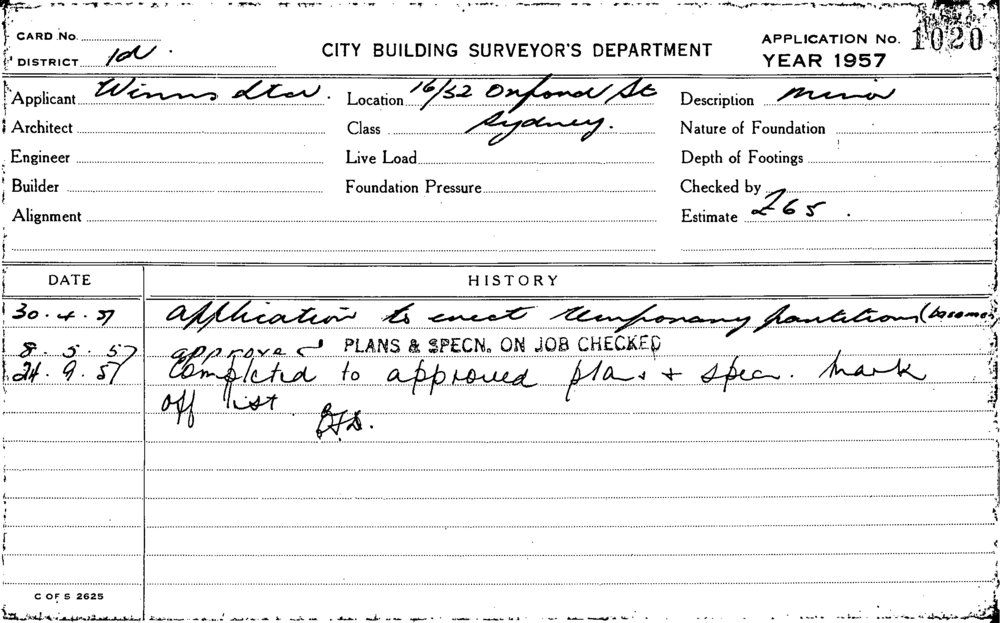 CARD No.
DISTRICT 1d.
CITY BUILDING SURVEYOR'S DEPARTMENT
APPLICATION No. 1020
YEAR 1957
Applicant Winns Ltd. Location 16/32 Oxford St Description minor
Architect Class Sydney. Nature of Foundation
Engineer Live Load Depth of Footings
Builder Foundation Pressure Checked by
Alignment Estimate £65.
DATE HISTORY
30.4.57 Application to erect temporary partitions
8.5.57 approved PLANS & SPECN. ON JOB CHECKED
24.9.57 Completed to approved plans + specn. Mark
off list
C OF S 2625